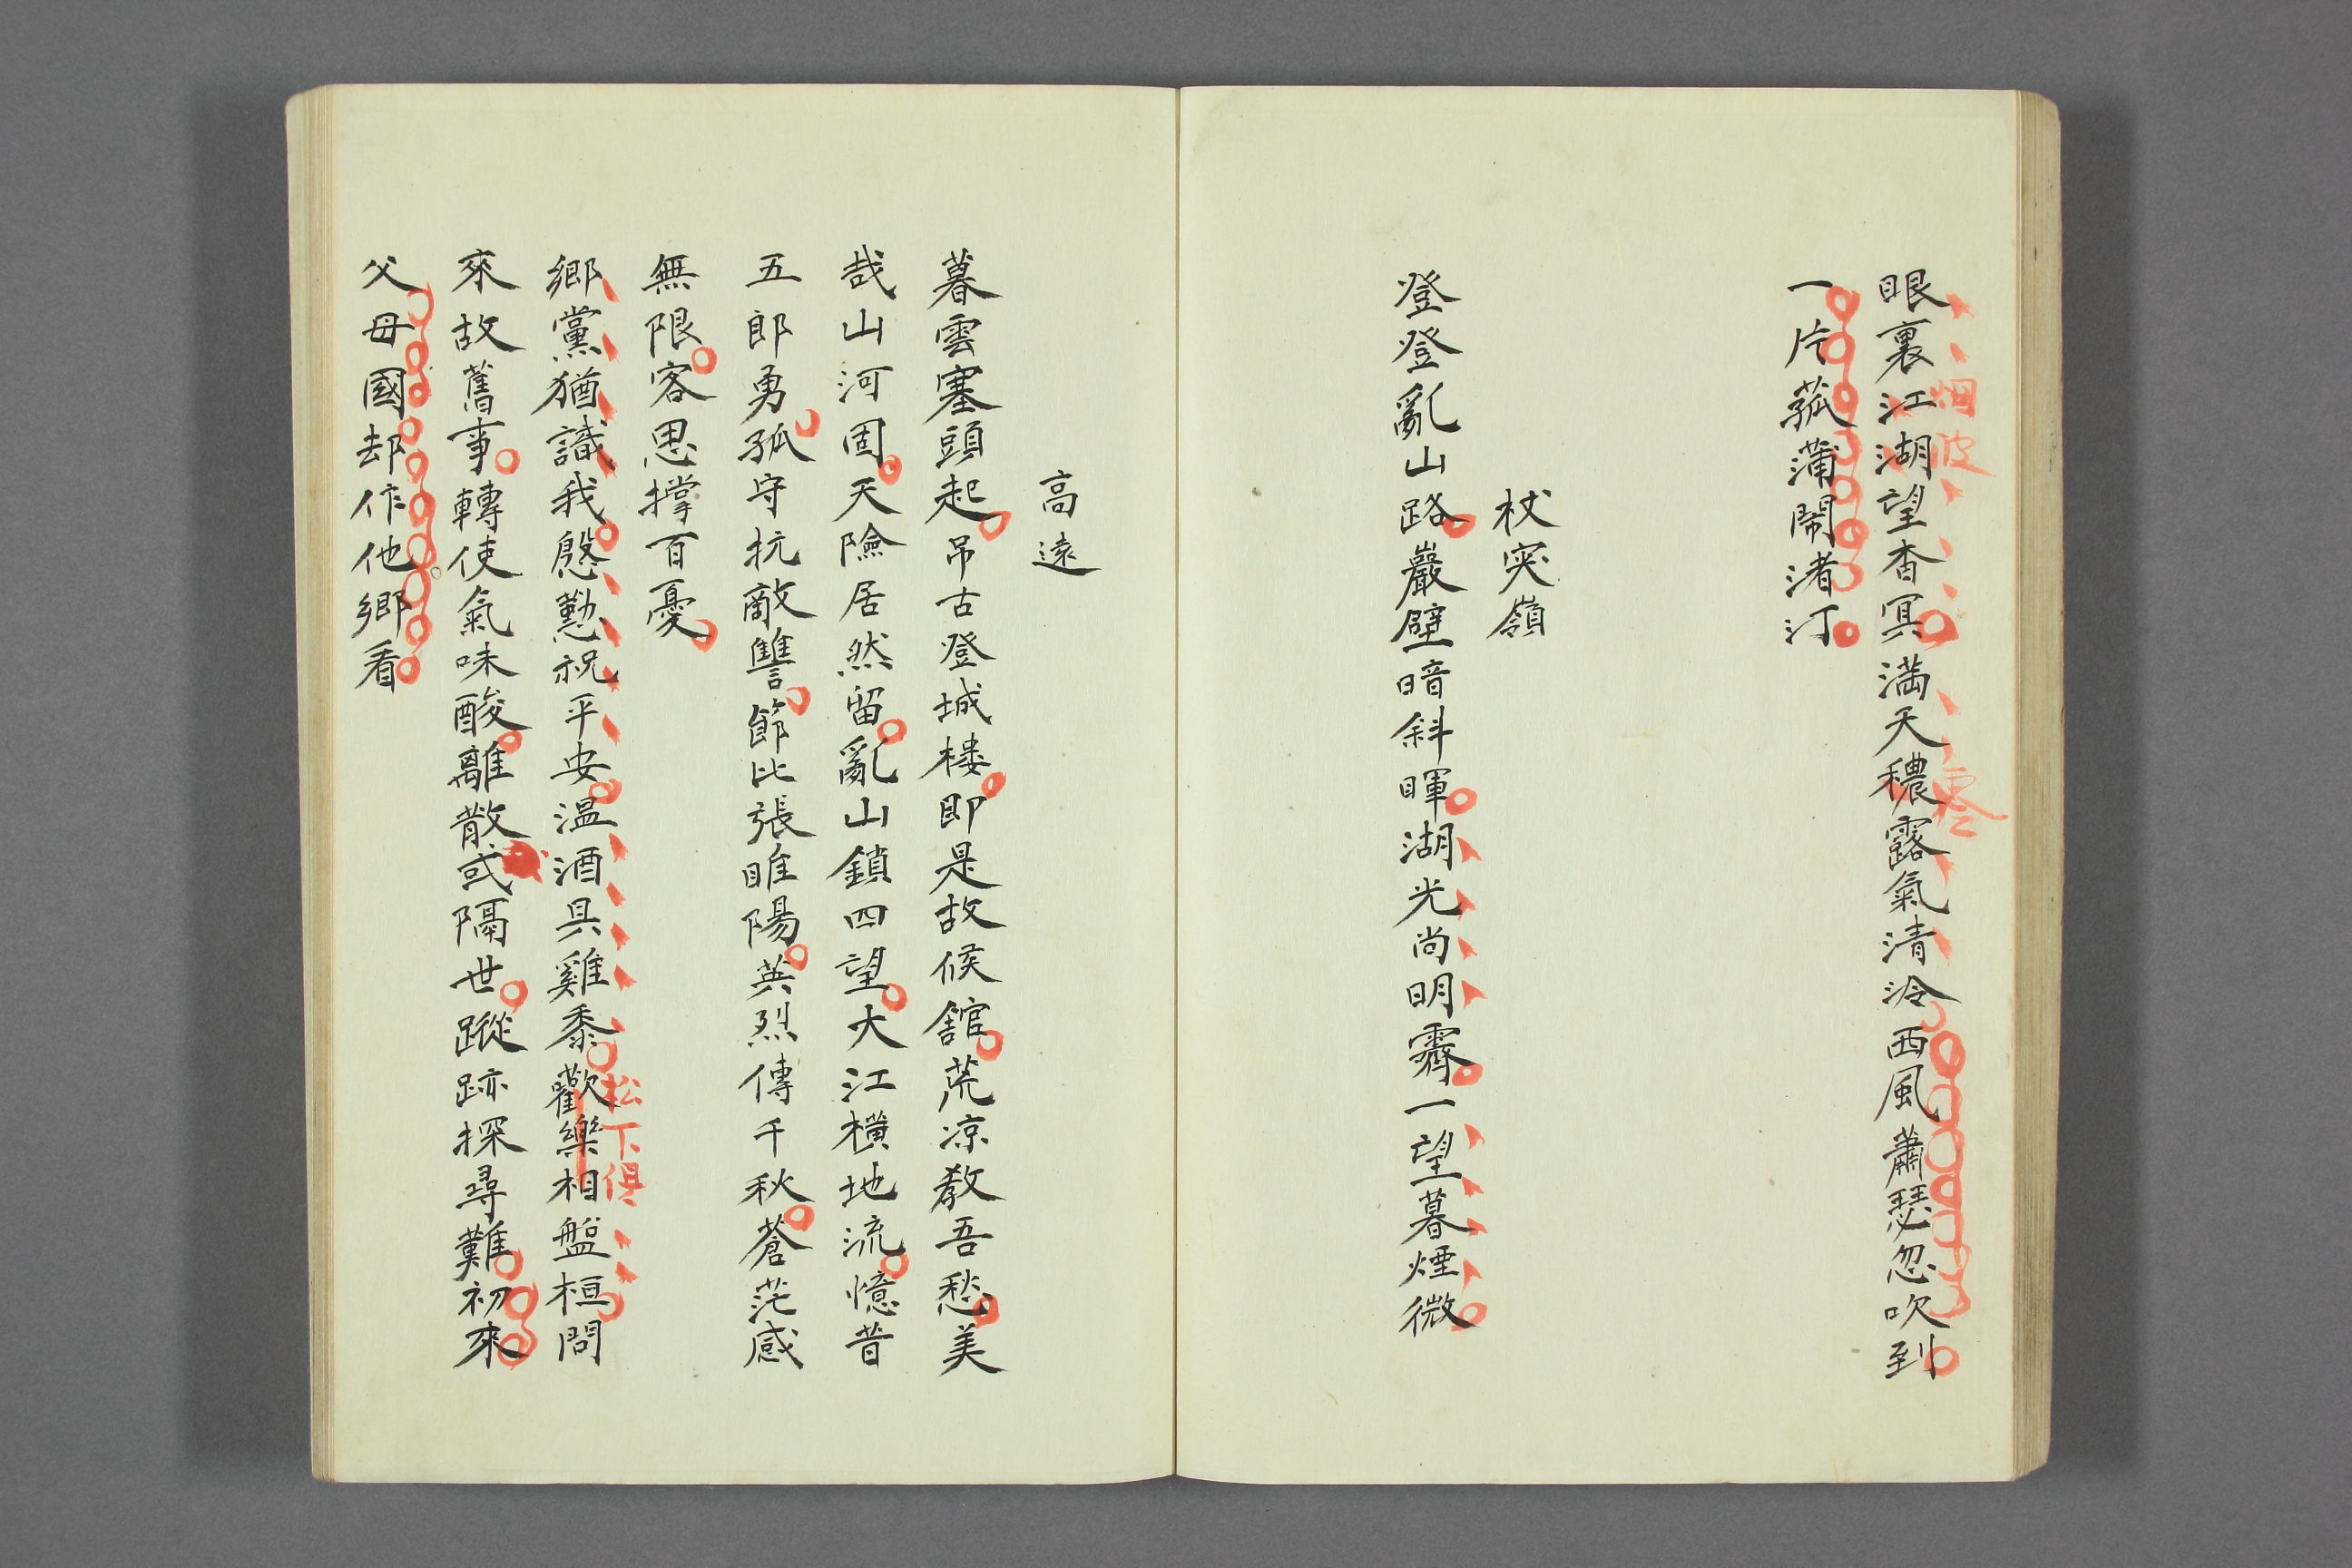 眼裏江湖望杳冥満天穠露氣清泠西風蕭瑟忽吹到
烟波
零
一片菰蒲鬧渚汀
杖突嶺
登登亂山路巖壁暗斜暉湖光尚明霽一望暮煙微
高遠
暮雲塞頭起吊古登城樓即是故候舘荒凉教吾愁美
哉山河固天險居然留亂山鎖四望大江橫地流憶昔
五郎勇孤守抗敵讐節比張睢陽英烈傳千秋蒼茫感
無限客思撑百憂
鄉黨猶識我慇懃祝平安温酒具雞黍歡樂相盤桓問
松下倶
來故舊事轉使氣味酸離散或隔世蹤跡探尋難初來
父母國却作他鄉看